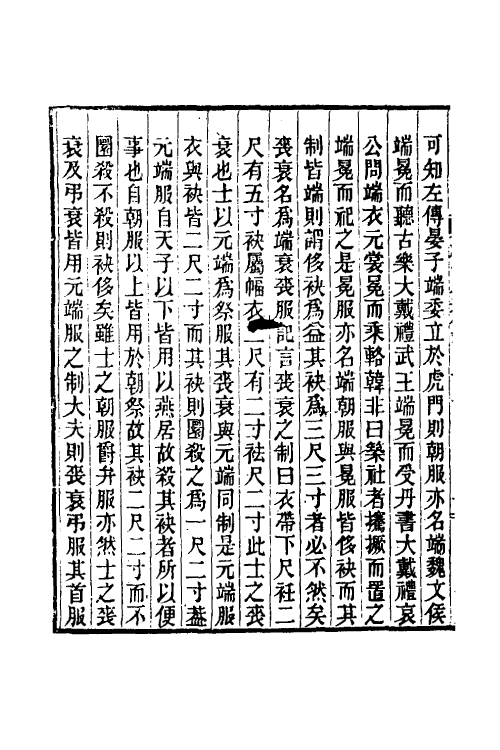 可知左傳晏子端委立於虎門則朝服亦名端魏文侯
端冕而聽古樂大戴禮武王端冕而受丹書大戴禮哀
公問端衣元裳冕而乘輅韓非曰築社者攐撅而置之
端冕而祀之是冕服亦名端朝服與冕服皆侈袂而其
制皆端則謂侈袂爲益其袂爲三尺三寸者必不然矣
喪衰名爲端衰喪服記言喪衰之制曰衣帶下尺衽二
尺有五寸袂屬幅衣二尺有二寸袪尺二寸此士之喪
衰也士以元端爲祭服其喪衰與元端同制是元端服
衣與袂皆二尺二寸而其袂則圜殺之爲一尺二寸蓋
元端服自天子以下皆用以燕居故殺其袂者所以便
事也自朝服以上皆用於朝祭故其袂二尺二寸而不
圜殺不殺則袂侈矣雖士之朝服爵弁服亦然士之喪
衰及弔衰皆用元端服之制大夫則喪衰弔服其首服